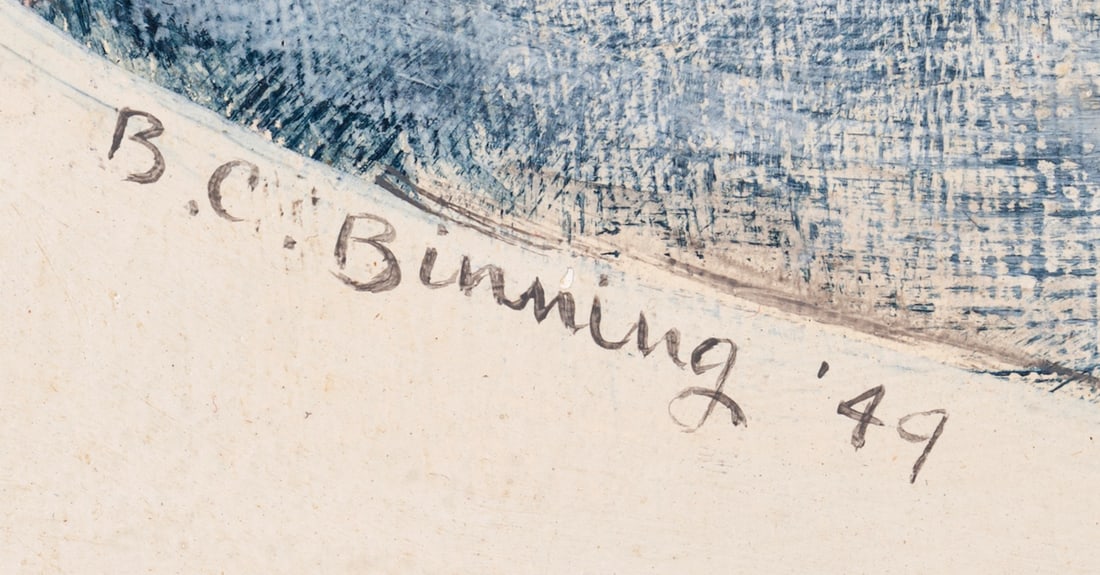 B.C. Binning '49